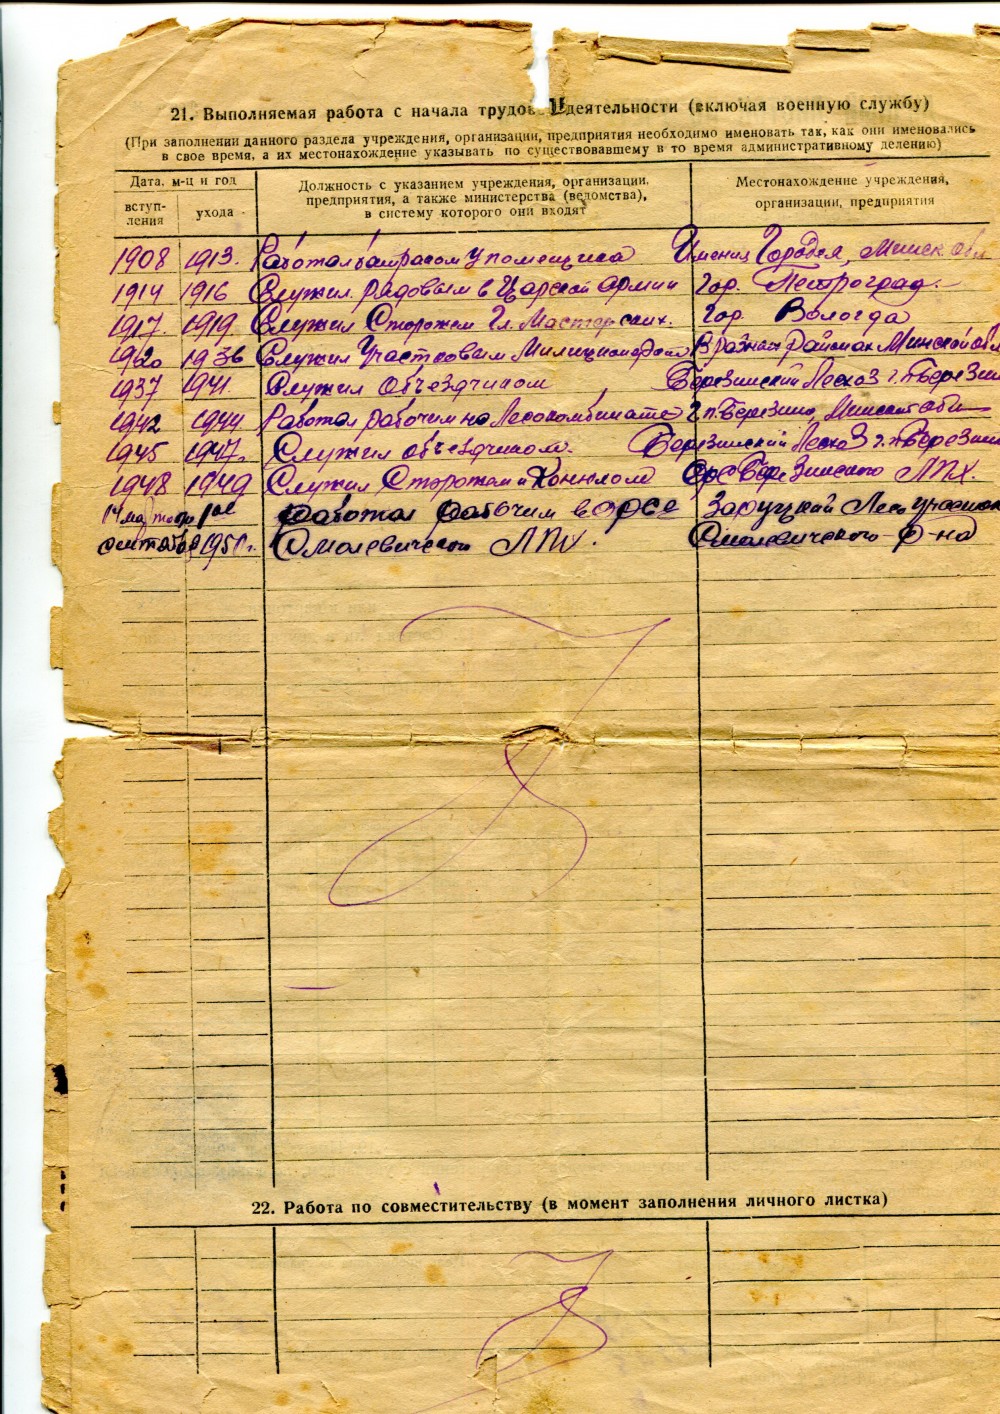 21. Выполняемая работа с начала трудовой деятельности (включая военную службу)
(При заполнении данного раздела учреждения, организации, предприятия необходимо именовать так, как они именовались
в свое время, а их местонахождение указывать по существовавшему в то время административному делению)
Дата, м-ц и год
вступ-
ления
ухода
Должность с указанием учреждения, организации,
предприятия, а также министерства (ведомства),
в систему которого они входят
Местонахождение учреждения,
организации, предприятия
1908 1913. Работал батраком у помещика Имениц Городея, Минск. обл
1914 1916 Служил рядовым в Царской армии Гор. Петроград.
1917. 1919 Служил Сторожем Гл. Мастерских. Гор Вологда
1920 1936 Служил Участковым Милиционером В разных районах Минской обл
1937 1941 Служил объездчиком Березинский Лесхоз г.п Березин
1942 1944 Работал рабочим на Лесокомбинате г.п. Березино, Минской обл
1945 1947. Служил объездчиком. Березинский Лесхоз г.п Березин
1948 1949 Служил Сторожем и Конюхом Орс Березинского ЛПХ.
Работал рабочим в орсе Лесоучасток
1951г. Смолевического ЛПХ. Смолевического р-на
22. Работа по совместительству (в момент заполнения личного листка)